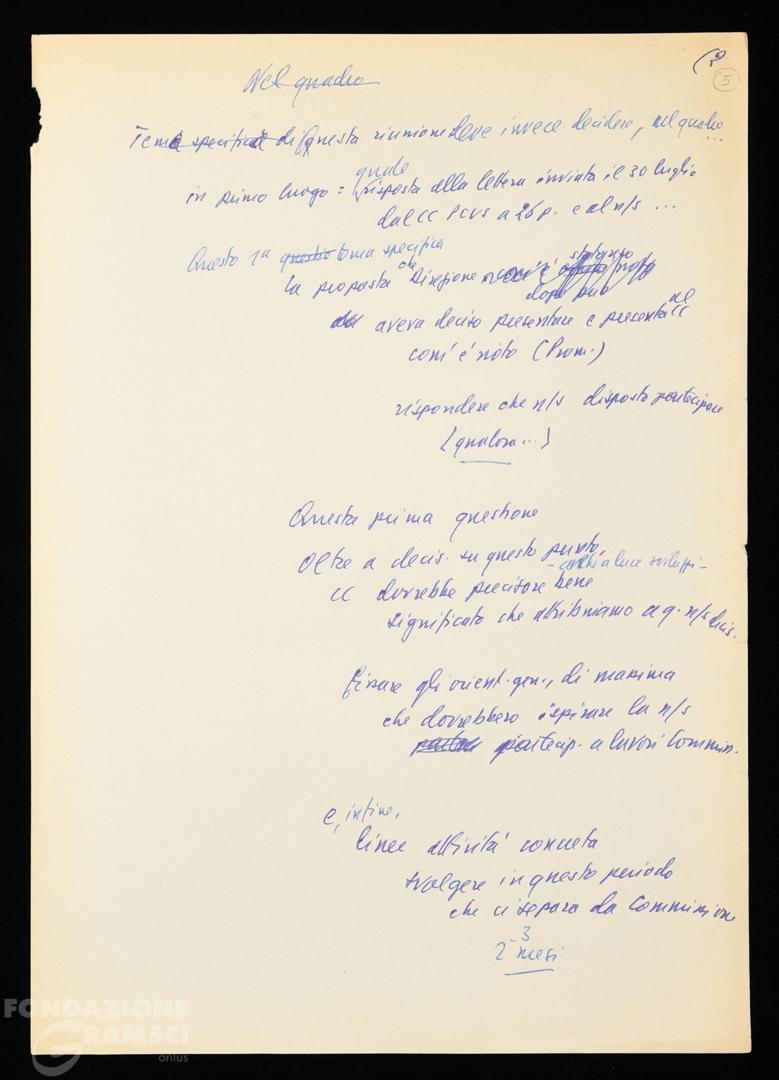 5
Nel quadro
Tema specifica di Questa riunione deve invece decidere, nel quadro...
quale
in primo luogo = risposta alla lettera inviata il 30 luglio
dal CC PCUS a 26 p. e al n/s ...
Questo 1a questo tema specifica
la proposta che Direzione com'è noto
dopo suo
aveva deciso presentare e presenta al CC
com'è noto (Prom.)
rispondere che n/s disposto partecipare
(qualora...)
Questa prima questione
Oltre a decis. su questo punto,
- anche a luce sviluppi -
CC dovrebbe precisare bene
significato che attribuiamo a q. n/s decis.
Fissare gli orient. gen., di massima
che dovrebbero ispirare la n/s
partecip. a lavori Commiss.
e, infine,
linee attività concreta
svolgere in questo periodo
che ci separa da Commissione
2-3 mesi
FONDAZIONE
GRAMSCI
onlus